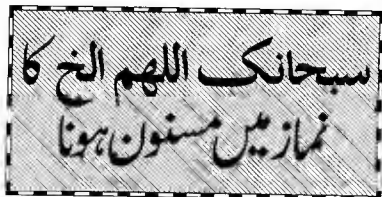 سبحانک اللهم الخ کا
نماز میں مسنون ہونا